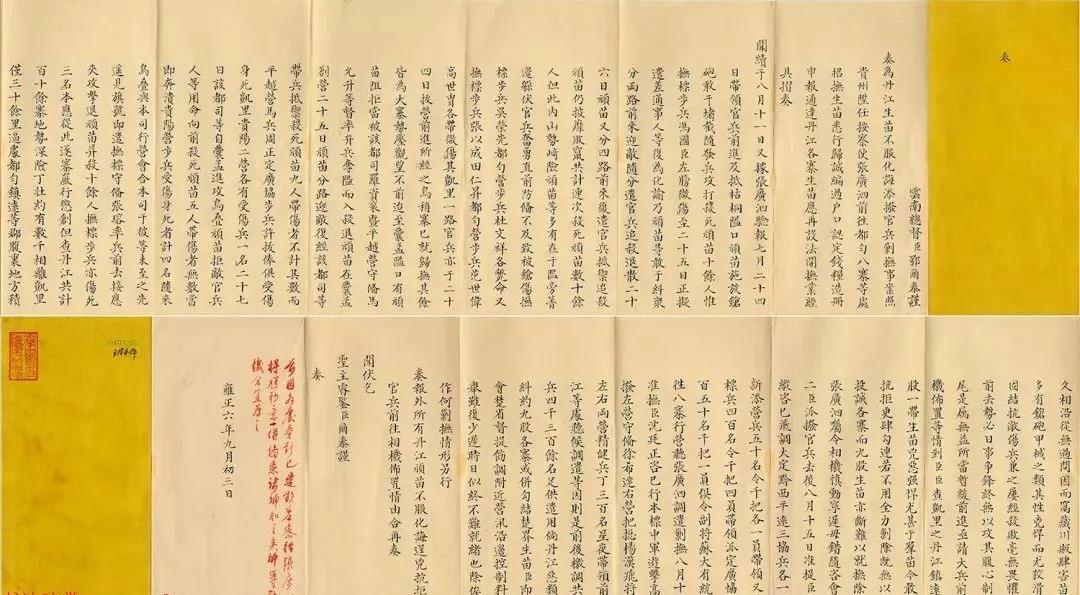 奏
雲南總督臣鄂爾泰謹
奏為丹江生苗不服化誨添撥官兵剿撫事案照
貴州陞任按察使張廣泗前往都勻八寨等處
招撫生苗悉行歸誠編過戶口認定錢糧造冊
申報通達丹江各寨生苗應再設法開撫業經
具摺奏
聞續于八月十一日又據張廣泗驗報七月二十四
日帶領官兵前進及抵枯桐隘口頑苗施放鎗
砲敢于堵截隨發兵攻打殺死頑苗十餘人惟
撫標步兵馮國臣左膀微傷至二十五日正擬
遣差通事人等復為化諭乃頑苗等敢于糾衆
分兩路前來迎敵隨分遣官兵追殺退散二十
六日頑苗又分四路前來復遣官兵抵禦追殺
頑苗仍披靡敗竄共計連次殺死頑苗數十餘
人但此內山勢崎險頑苗等多有在于隘旁菁
邊躲伏官兵奮勇直前防備不及致被鎗傷撫
標步兵吳榮先都勻營步兵杜文祥各斃命又
撫標步兵張以成田仁昇都勻營步兵范世偉
高世貴各帶微傷其凱里一路官兵亦于二十
四日拔營前進所經之烏稍寨已就歸撫其餘
皆為大寨勢壓觀望不前迨至囊孟隘口有頑
苗阻拒當被該都司羅資袞暨平越營守備馬
允升等督率弁兵等隘而入殺退頑苗在囊孟
劄營二十五日頑苗分路迎敵復經該都司等
帶兵抵禦殺死頑苗九人帶傷者不計其數而
平越營馬兵周正定廣協步兵許拔俸俱受傷
身死凱里貴陽二營各有受傷兵一名二十七
日該都司等自囊孟進攻烏疊頑苗拒敵官兵
人等用命向前殺死頑苗五人帶傷者無數當
即奔潰貴陽營步兵受傷身死者計四名隨來
烏疊與本司行營會合本司于彼等未至之先
遙見旗號即遣撫標守備張瑢率兵前去接應
夾攻擊退頑苗并殺十餘人撫標步兵亦傷死
三名本應從此逐寨嚴行懲創但查丹江共計
百十餘寨地勢深險丁壯約有數千相離凱里
僅三十餘里通處都勻鎮遠等郡腹裏地方積
久相沿從無過問因而窩藏川販肆害苗
多有鎗砲甲械之類其性兇悍而尤狡滑
因結抗敵傷兵兼之屢經殺敗毫無畏懼
前去勢必日事爭鋒終無以攻其腹心制
尾是屬無益所當暫緩前進亟請大兵前
機佈置等情到臣臣查凱里之丹江鎮遠
股一帶生苗兇惡強悍尤甚于羣苗今敢
抗拒更肆勾連若不用全力剿除既無以
投誠各寨而九股生苗亦斷難以就撫除
張廣泗屬令相機慎動享遲毋錯隨咨會
二臣派撥官兵去後八月十五日准提臣
縱咨已遞調大定黔西平遠三協兵各一
新添營兵五十名令千把各一員帶領又
標兵四百名令千把四員帶領派定廣協
百五十名千把一員俱令副將蘇大有統
往八寨行營聽張廣泗調遣剿撫八月十
准撫臣沈廷正咨已行本標中軍遊擊高
撥左營守備徐布逵右營把總楊漢飛將
左右兩營精健兵丁三百名星夜帶領前
江等處聽候調遣等因則是前後檄調共
兵四千三百餘名足供遣用倘丹江惡類
糾約九股各寨或併勾結楚界生苗臣即
會楚省督提飭調附近營汛沿邊控制料
舉雖復少遲時日似終不難就緒也除俟
作何剿撫情形另行
奏報外所有丹江頑苗不服化誨逞兇抗拒
官兵前往相機佈置情由合再奏
聞伏乞
聖主睿鑒臣爾泰謹
奏
雍正六年九月初三日